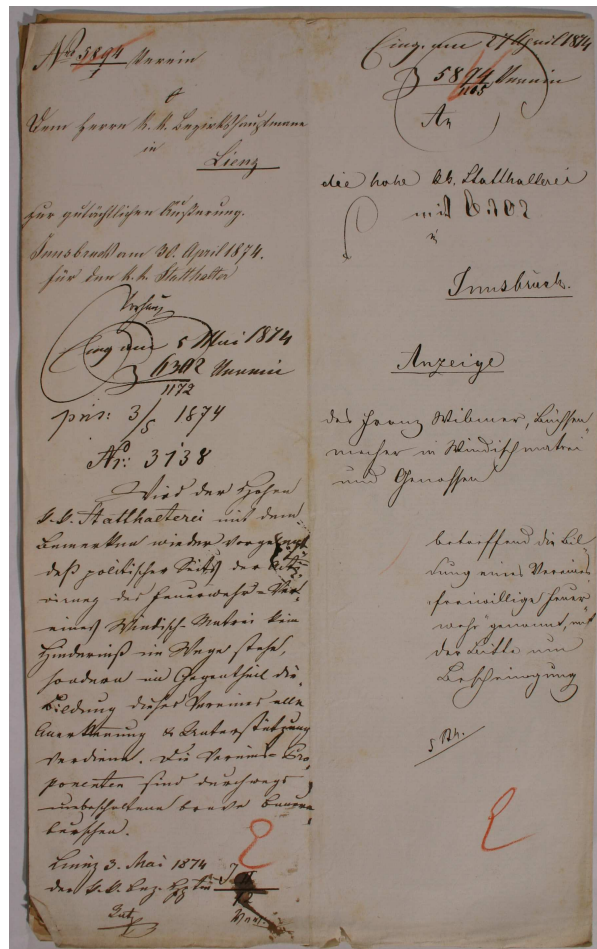 No 5894 Verein
Dem Herrn k. k. Bezirkshauptmann
in
Lienz
zur gutächtlichen Äußerung.
Innsbruck am 30. April 1874.
für den k. k. Statthalter
Eing am 5 Mai 1874
Z 6302 Verein
1172
prs: 3/5 1874
Nr: 3138
Wird der hohen
k. k. Statthalterei mit dem
Bemerken wieder vorgelegt
daß politischer Seits der
des Feuerwehr-Ver-
eines Windisch-Matrei kein
Hinderniß im Wege stehe,
sondern im Gegentheil die
Bildung dieses Vereines alle
Anerkennung & Unterstützung
verdient. Die Vereins-Pro-
ponenten sind durchwegs
unbescholtene brave Bauern-
burschen.
Lienz 3. Mai 1874
der k. k. Bez.
Eing. am 27 April 1874
Z 5894 Verein
1165
An
die hohe kk. Statthalterei
mit 6302
Innsbruck.
Anzeige
des Franz Wibmer, Büchsen
macher in Windischmatrei
und Genossen
betreffend die Bil
dung eines Vereines
freiwillige Feuer
wehr genannt, mit
der Bitte um
Bescheinigung